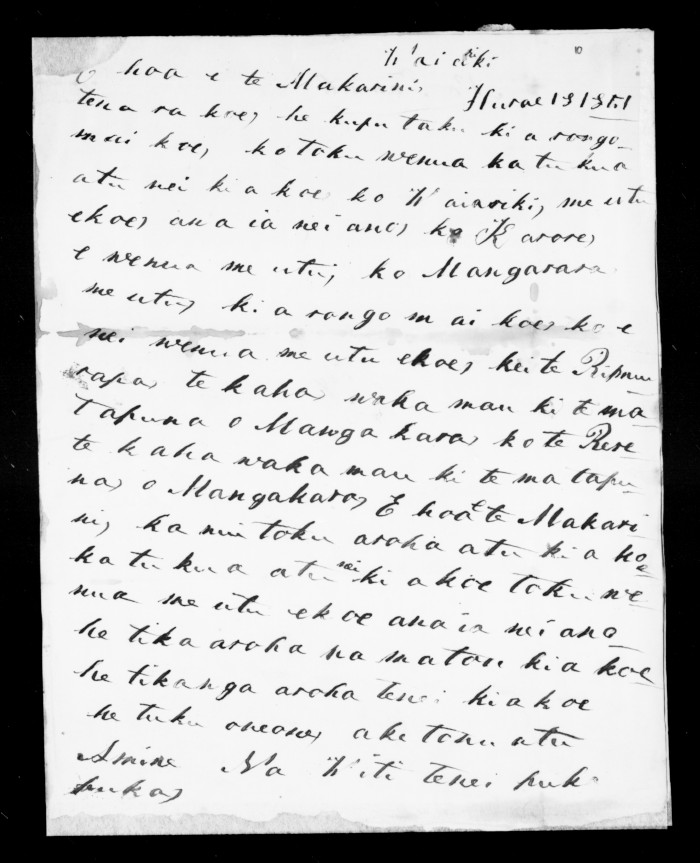 Wairiki
10
E hoa e te Makarini, Hurae 19 1851
tena ra koe, he kupu taku kia rongo
mai koe, ko toku wenua ka tukua
atu nei kia koe ko Wairiki, me utu
ekoe, ana ia nei ano, ko Karore,
e wenua me utu, ko Mangarara
me utu, kia rongo mai koe, ko e
nei wenua me utu ekoe, kei te
rapa, te kaha, waka mau ki te ma
tapuna o Mangahara, ko te Rere
te kaha waka mau ki te matapu
na, o Mangahara, E hoa e te Makari
ni, ka nui toku aroha atu kia ko
e
ka tukua atu nei kia koe toku we
nua me utu ekoe ana ia nei ano
he tika aroha na matou kia koe
he tikanga aroha tenei kia koe
he tuku oneone, ake tonu atu
Amine Na Witi tenei puk
puka,